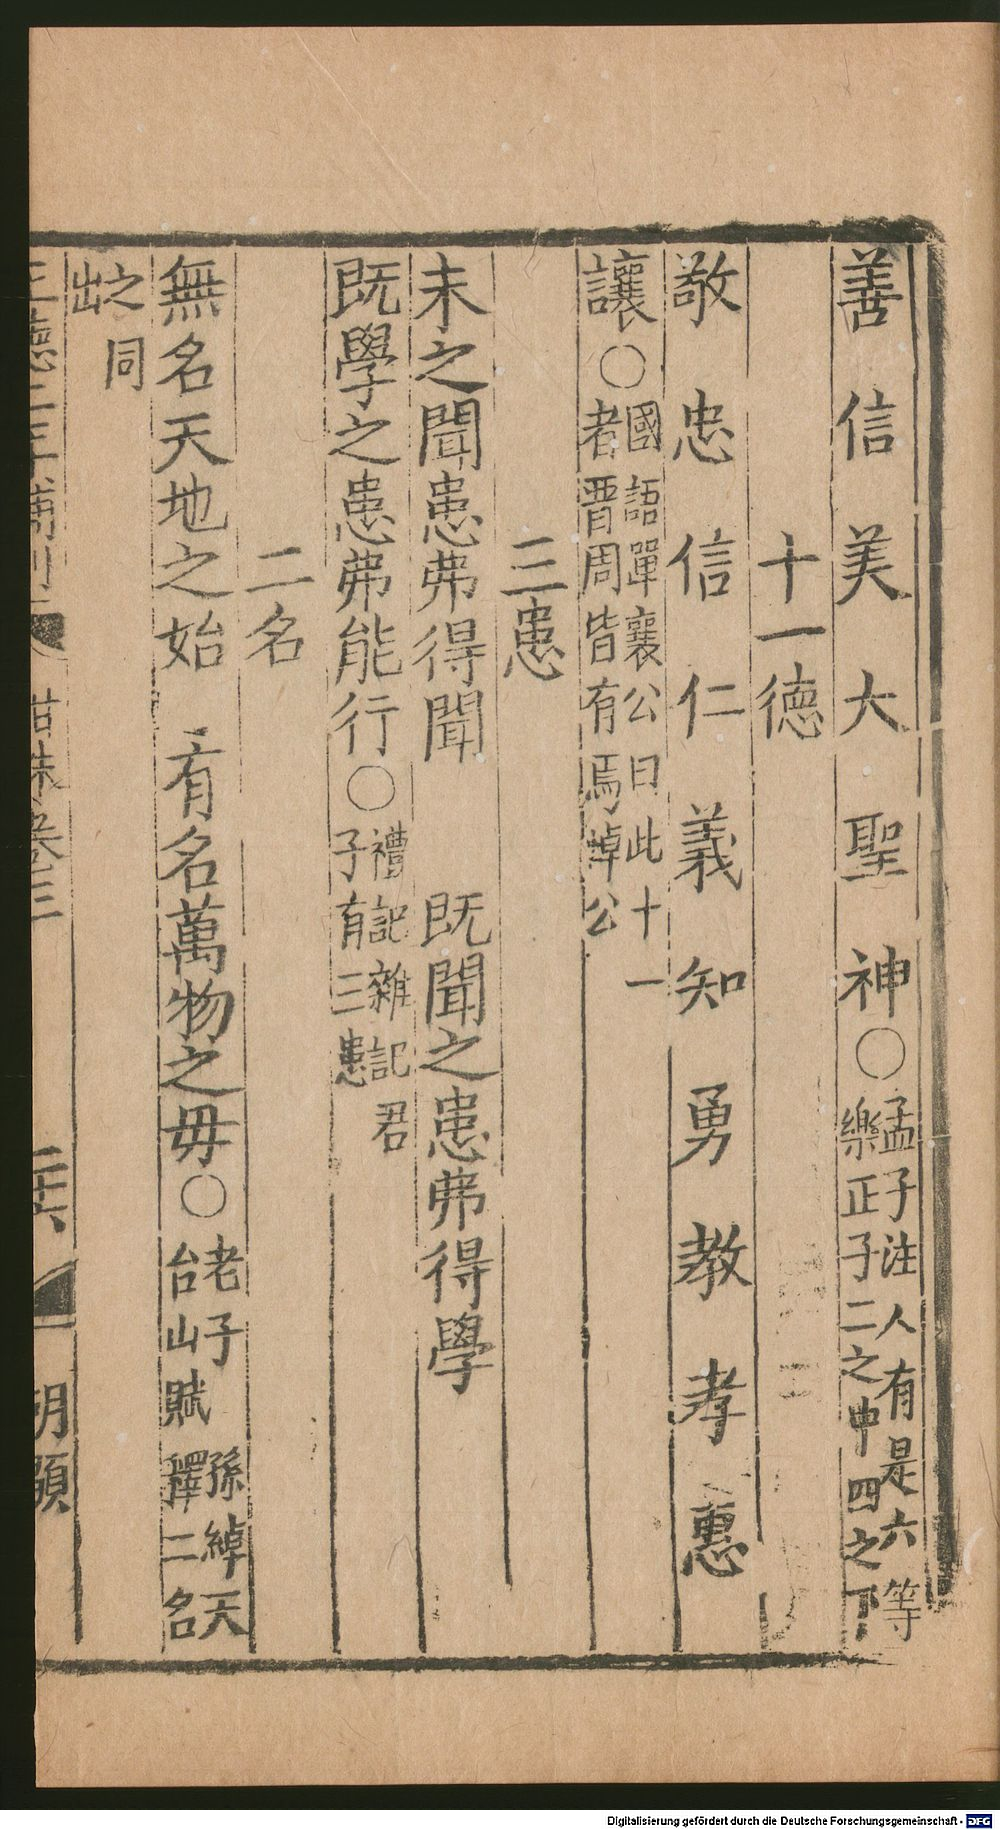 善信美大聖神○孟子注人有是六等
樂正子二之中四之下
十一德
敬忠信仁義知勇教孝惠
讓○國語單襄公曰此十一
者晋周皆有焉悼公
三患
未之聞患弗得聞　既聞之患弗得學
既學之患弗能行○禮記雜記君
子有三患
二名
無名天地之始　有名萬物之毋○老子　孫綽天
台山賦　釋二名
之同
出
卷三
二十六
Digitalisierung gefördert durch die Deutsche Forschungsgemeinschaft - DFG